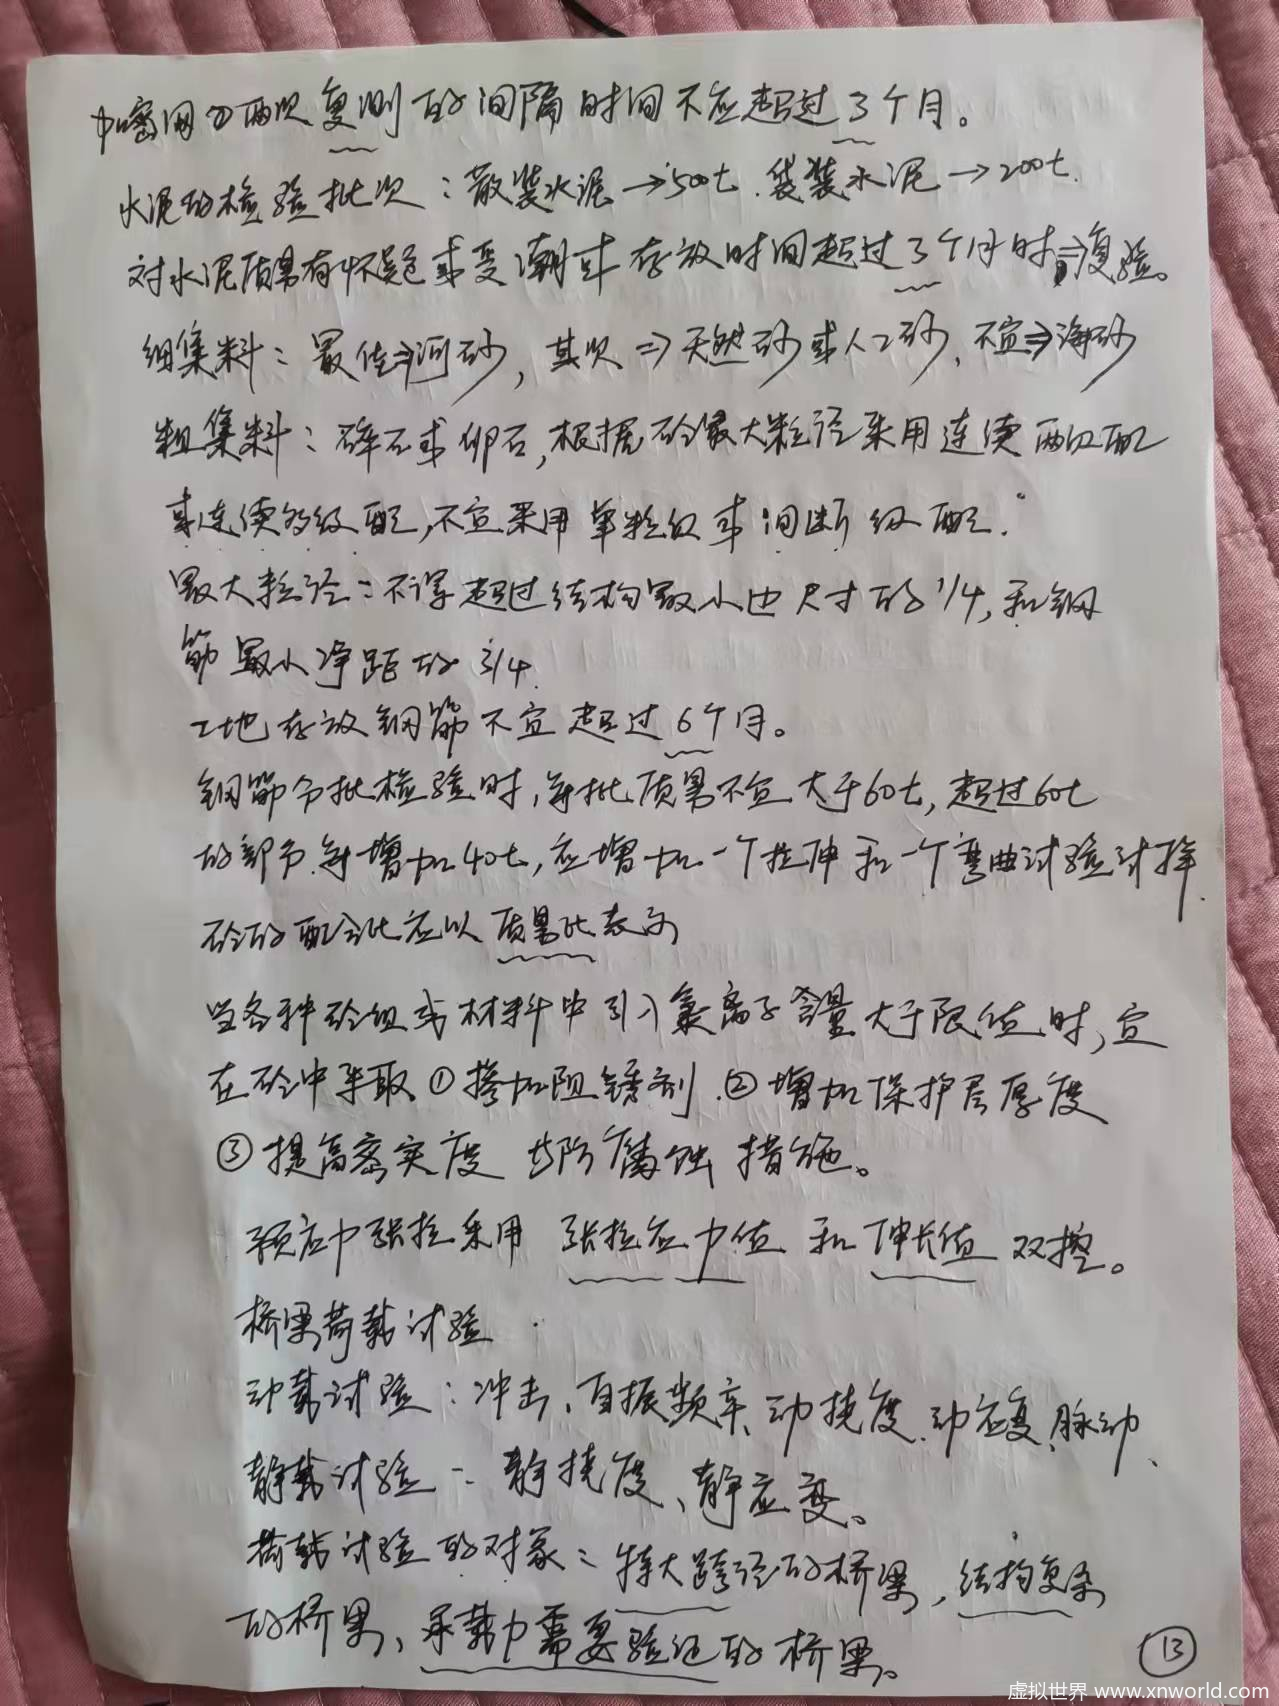 加密网的两次复测的间隔时间不应超过3个月。
水泥的检验批次：散装水泥→500t、袋装水泥→200t.
对水泥质量有怀疑或受潮或存放时间超过3个月时⇒复验。
细集料：最佳⇒河砂，其次⇒天然砂或人工砂、不宜⇒海砂
粗集料：碎石或卵石，根据砼最大粒径采用连续两级配
或连续多级配，不宜采用单粒级或间断级配.
最大粒径：不得超过结构最小边尺寸的1/4，和钢
筋最小净距的3/4.
工地存放钢筋不宜超过6个月。
钢筋分批检验时，每批质量不宜大于60t，超过60t
的部分每增加40t，应增加一个拉伸和一个弯曲试验试样.
砼的配合比应以质量比表示
当各种砼组成材料中引入氯离子含量大于限值时，宜
在砼中采取①掺加阻锈剂.②增加保护层厚度
③提高密实度 等防腐蚀措施。
预应力张拉采用 张拉应力值 和伸长值 双控。
桥梁荷载试验
动载试验：冲击、自振频率、动挠度、动应变、脉动、
静载试验：静挠度、静应变。
荷载试验的对象：特大跨径的桥梁，结构复杂
的桥梁、承载力需要验证的桥梁。
⑬
虚拟世界 www.xnworld.com